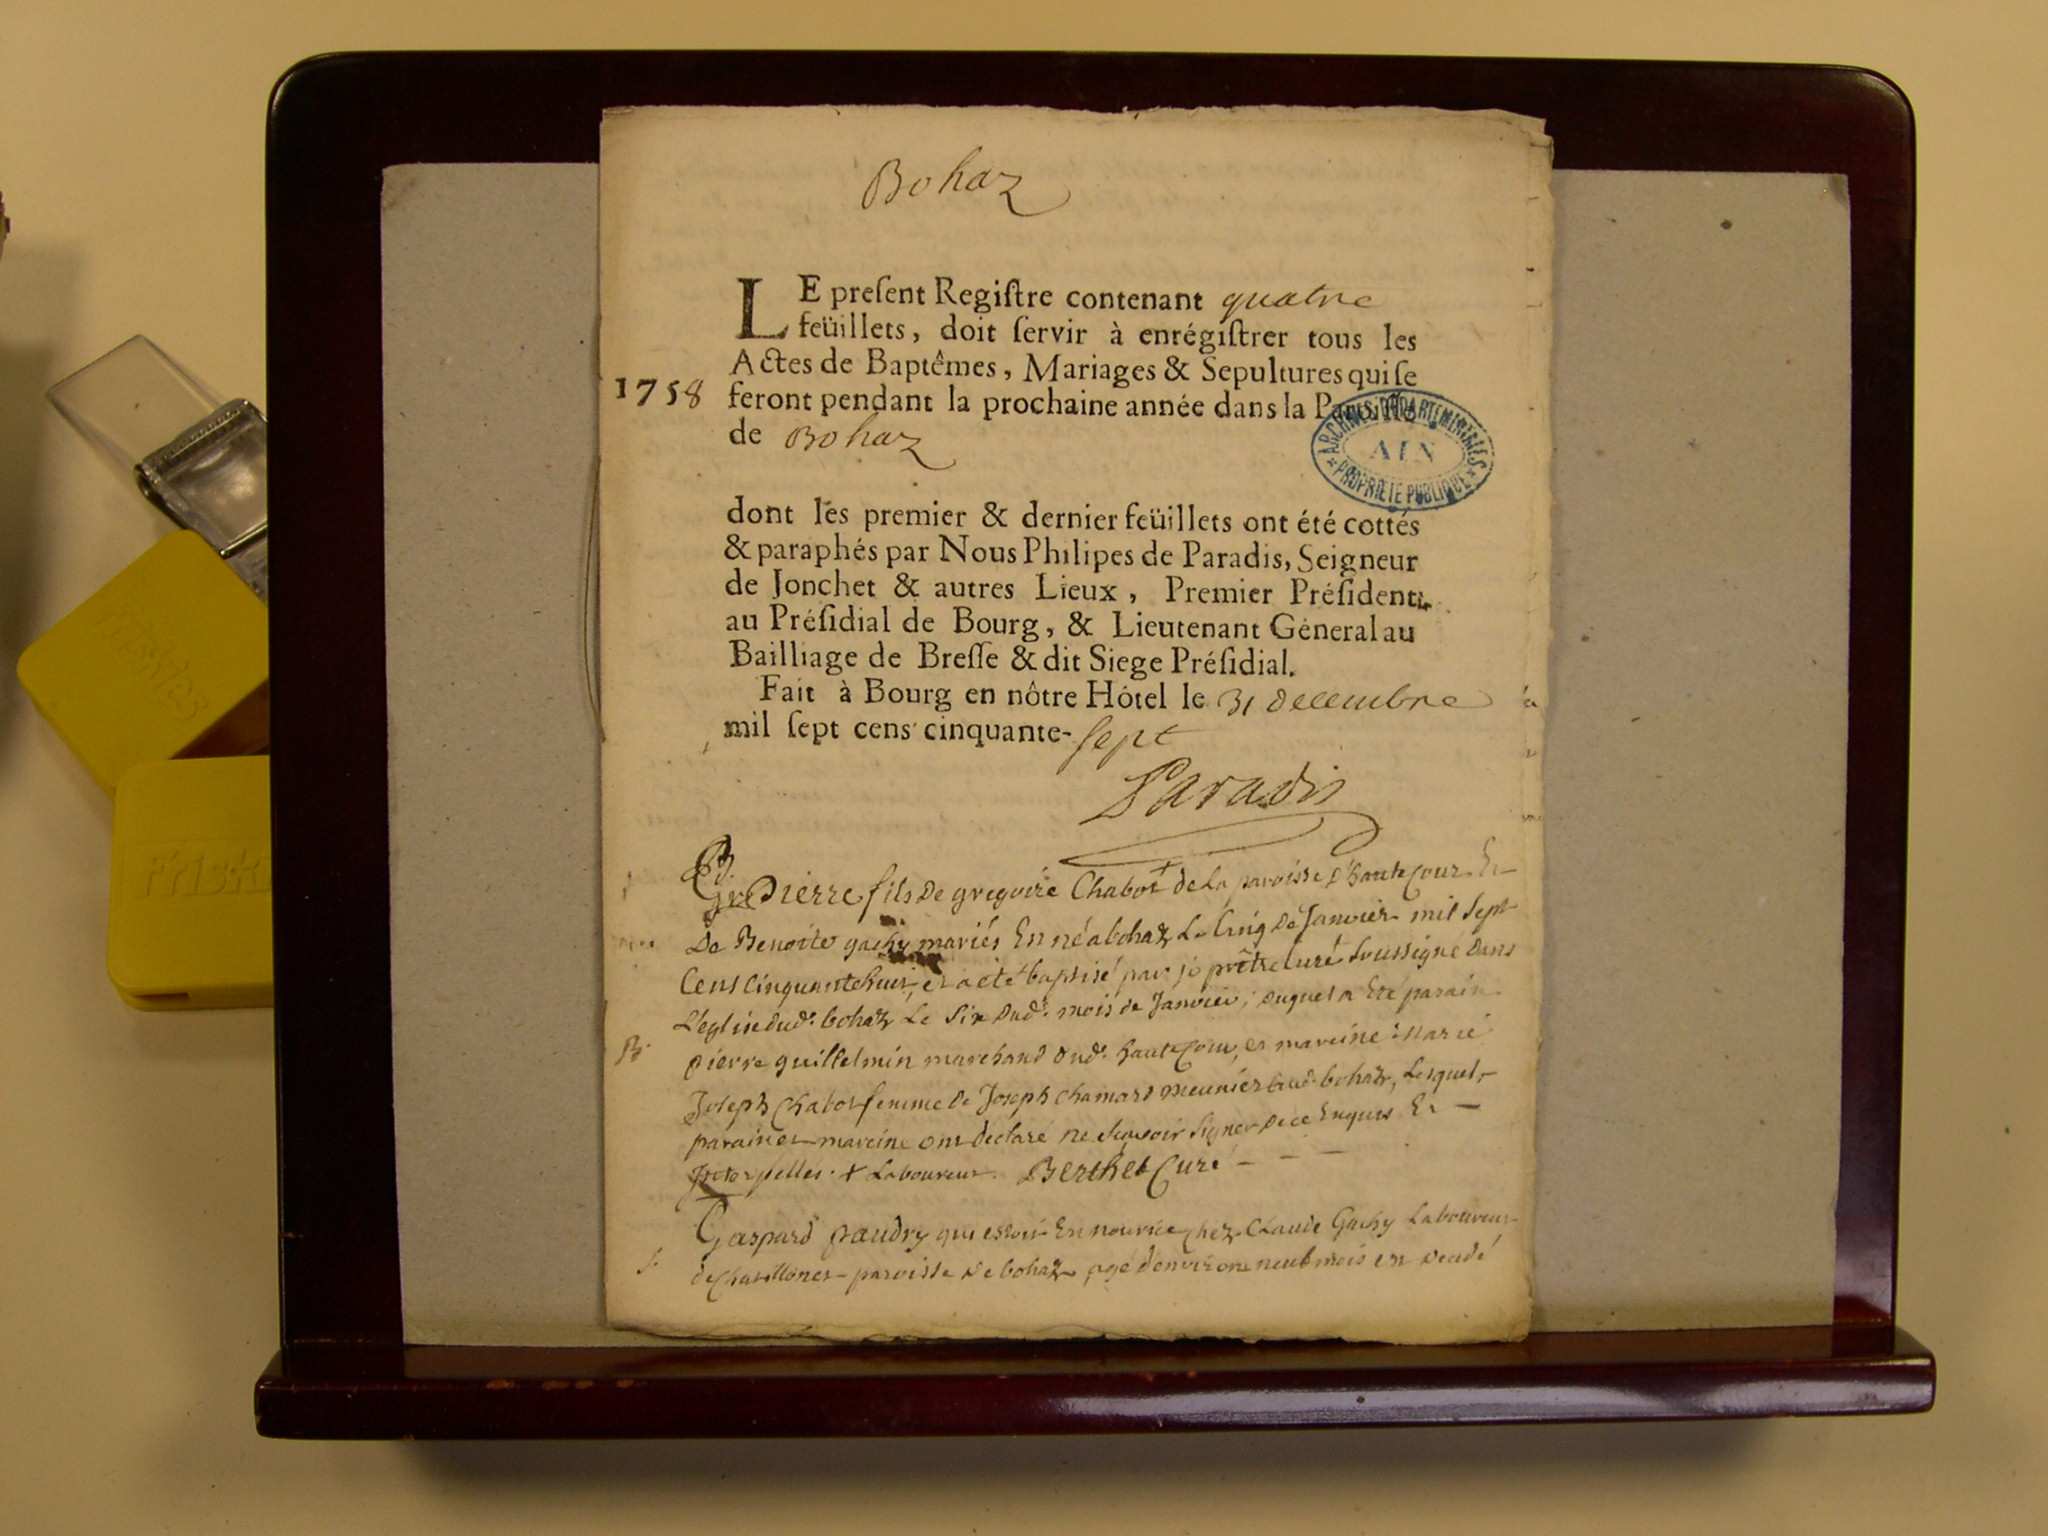 Bohaz
LE preſent Regiſtre contenant quatre
feüillets, doit ſervir à enrégiſtrer tous les
Actes de Baptêmes, Mariages & Sepultures qui ſe
1758 feront pendant la prochaine année dans la
de Bohaz
ARCHIVES DÉPARTEMENTALES
AIN
PROPRIÉTÉ PUBLIQUE
dont les premier & dernier feüillets ont été cottés
& paraphés par Nous Philipes de Paradis, Seigneur
de Jonchet & autres Lieux, Premier Préſident
au Préſidial de Bourg, & Lieutenant Géneral au
Bailliage de Breſſe & dit Siege Préſidial.
Fait à Bourg en nôtre Hôtel le 31 decembre
mil ſept cens cinquante-sept
Paradis
Pierre fils de gregoire Chabot + de la paroisse d'hautecour Et
De Benoite gachy mariés En né a bohaz Le Cinq de Janvier mil sept
Cens Cinquantehuit, et a eté baptisé par je prêtre Curé soussigné dans
L'eglise dud. bohaz Le six dud. mois de Janvier; duquel a Eté parain
pierre guillelmin marchand dud. hautecour, et mareine Marie
B.
Joseph Chabot femme de Joseph Chamard meunier aud. bohaz, Lesquels
parain et mareine ont declaré ne sçavoir signer de ce Enquis Et —
Interpelles. + Laboureur. Berthet Curé — — —
Gaspard paudry qui estoit En nourice chez Claude Gachy Laboureur
S. de paroisse de bohaz, agé d'environ neuf mois est decedé
Friskies
Friski